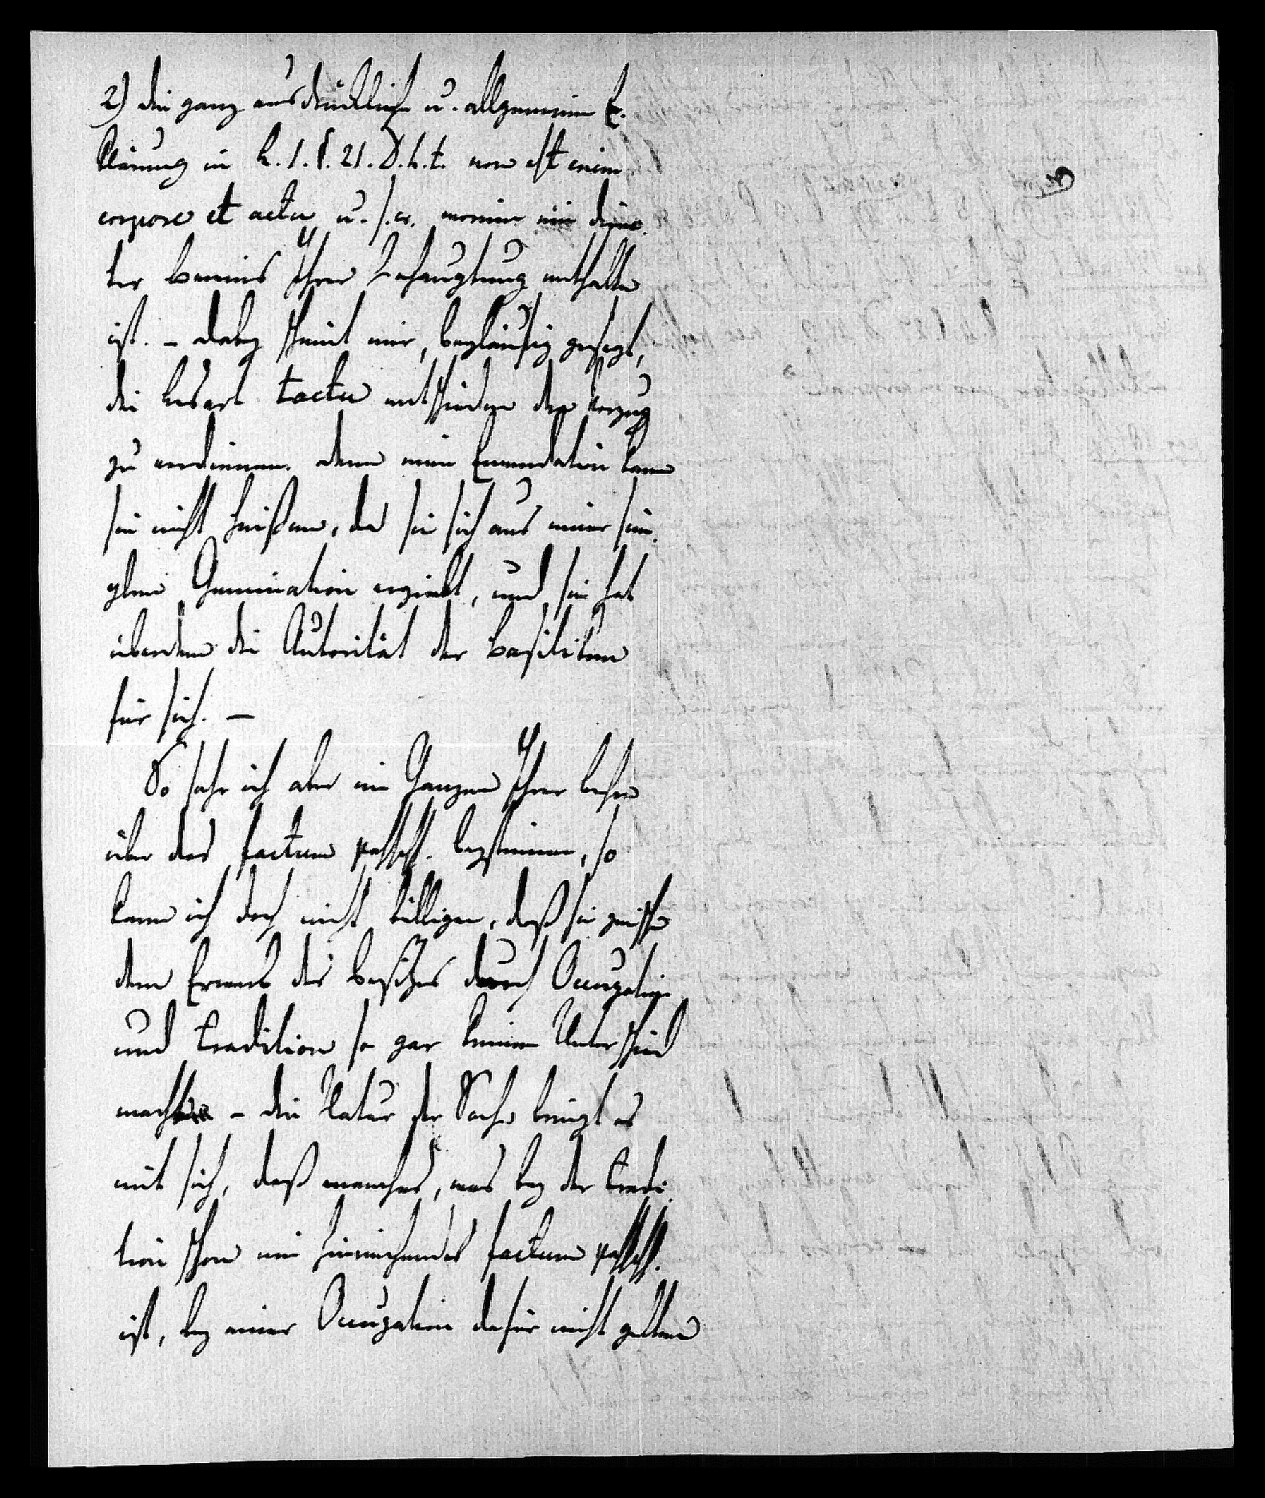 2) die ganz ausdrückliche u. allgemeine Er-
klärung in L. 1. §. 21. D. h. t. non est enim
corpore et actu u. s. w. worin ein direc-
ter Beweis Ihrer Behauptung enthalten
ist. – dabey scheint mir, beyläufig gesagt,
die Lesart tactu entschieden den Vorzug
zu verdienen. denn eine Emendation kann
sie nicht heißen, da sie sich aus einer sim-
plen Gemination ergiebt, und sie hat
überdem die Autorität der Basiliken
für sich. –
So sehr ich aber im Ganzen Ihrer Lehre
über das factum possess. beystimme, so
kann ich doch nicht billigen, daß sie zwischen
dem Erwerb des Besitzes durch Occupation
und Tradition so gar keinen Unterschied
machen – die Natur der Sache bringt es
mit sich, daß manches, was bey der Tradi-
tion schon ein hinreichendes factum possess.
ist, bey einer Occupation dafür nicht gelten